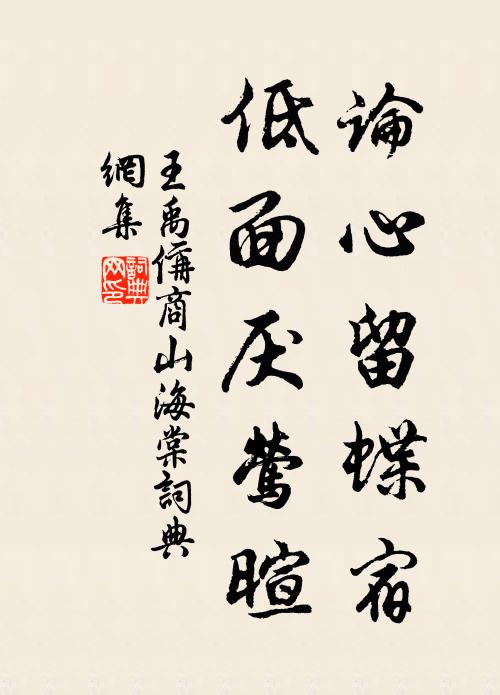 論心留蝶宿
低面厌鶯暄
王禹偁商山海棠詞典
網集
詞典
网印